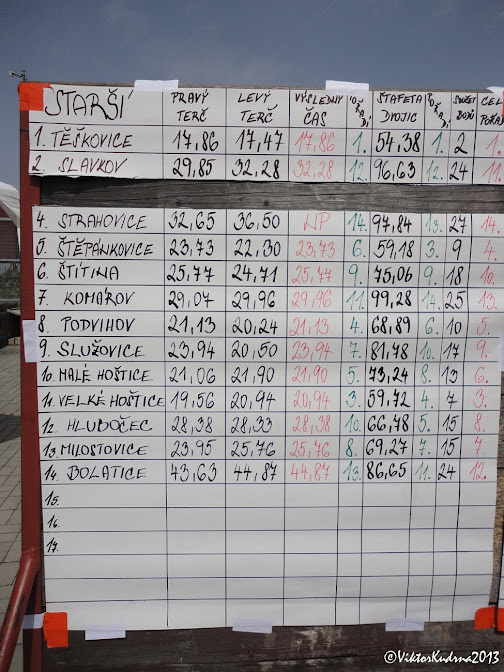 STARŠÍ PRAVÝ TERČ LEVÝ TERČ VÝSLEDNÝ ČAS POŘADÍ ŠTAFETA DVOJIC POŘADÍ SOUČET BODŮ CEL. POŘAD
1. TĚŠKOVICE 17,86 17,47 17,86 1. 54,38 1. 2 1.
2. SLAVKOV 29,85 32,28 32,28 12. 96,63 12. 24 11.
4. STRAHOVICE 32,65 36,50 NP 14. 97,84 13. 27 14.
5. ŠTĚPÁNKOVICE 23,73 22,30 23,73 6. 59,18 3. 9 4.
6. ŠTÍTINA 25,77 24,71 25,77 9. 75,06 9. 18 10.
7. KOMÁROV 29,07 29,96 29,96 11. 99,28 14. 25 13.
8. PODVIHOV 21,13 20,24 21,13 4. 68,89 6. 10 5.
9. SLUŽOVICE 23,94 20,50 23,94 7. 81,78 10. 17 9.
10. MALÉ HOŠTICE 21,06 21,90 21,90 5. 73,24 8. 13 6.
11. VELKÉ HOŠTICE 19,56 20,94 20,94 3. 59,72 4. 7 3.
12. HLUBOČEC 28,38 28,33 28,38 10. 66,78 5. 15 8.
13. MILOSTOVICE 23,95 25,76 25,76 8. 69,27 7. 15 7.
14. BOLATICE 43,63 44,87 44,87 13. 86,65 11. 24 12.
15.
16.
17.
©ViktorKudrna2013